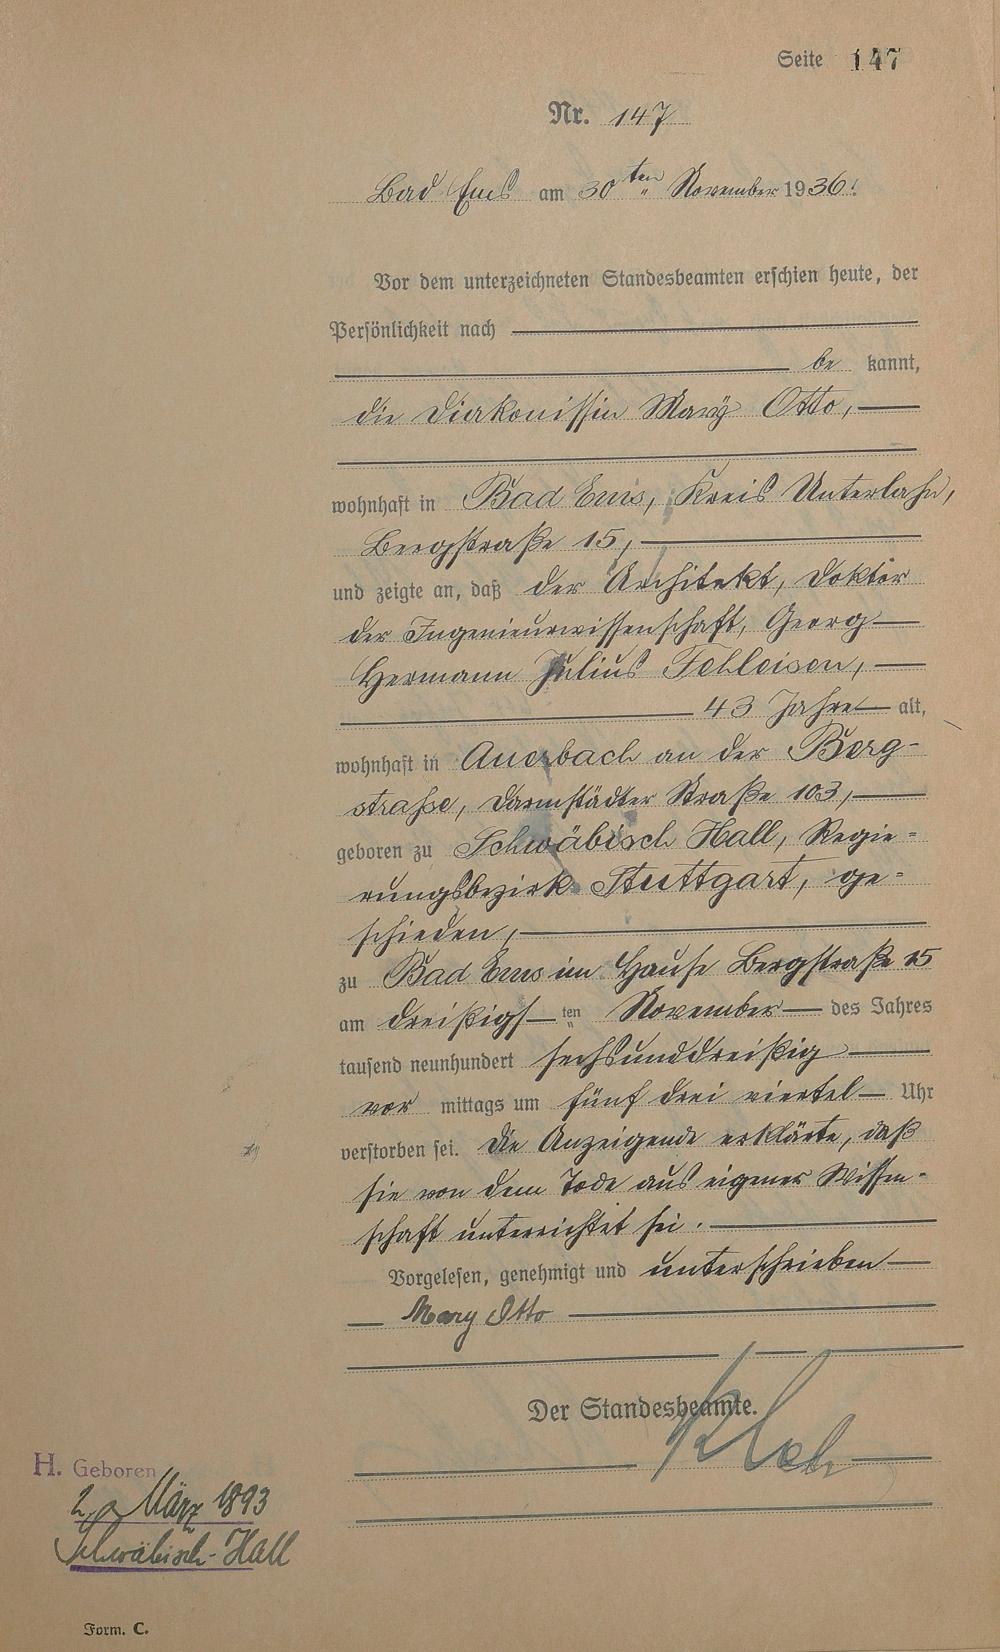 Seite 147
Nr. 147
Bad Ems am 30ten November 1936.
Vor dem unterzeichneten Standesbeamten erschien heute, der
Persönlichkeit nach
be kannt,
die Diakonissin Mary Otto,
wohnhaft in Bad Ems, Kreis Unterlahn,
Bergstraße 15,
und zeigte an, daß der Architekt, Doktor
der Ingenieurwissenschaft, Georg
Hermann Julius Fehleisen,
43 Jahre alt,
wohnhaft in Auerbach an der Berg-
strasse, Darmstädter Straße 103,
geboren zu Schwäbisch Hall, Regie=
rungsbezirk Stuttgart, ge=
schieden,
zu Bad Ems im Hause Bergstraße 15
am dreißigs ten November des Jahres
tausend neunhundert sechsunddreißig
vor mittags um fünf drei viertel Uhr
verstorben sei. Die Anzeigende erklärte, daß
sie von dem Tode aus eigener Wissen-
schaft unterrichtet sei.
Vorgelesen, genehmigt und unterschrieben
Mary Otto
Der Standesbeamte.
H. Geboren
2. März 1893
Schwäbisch-Hall
Form. C.